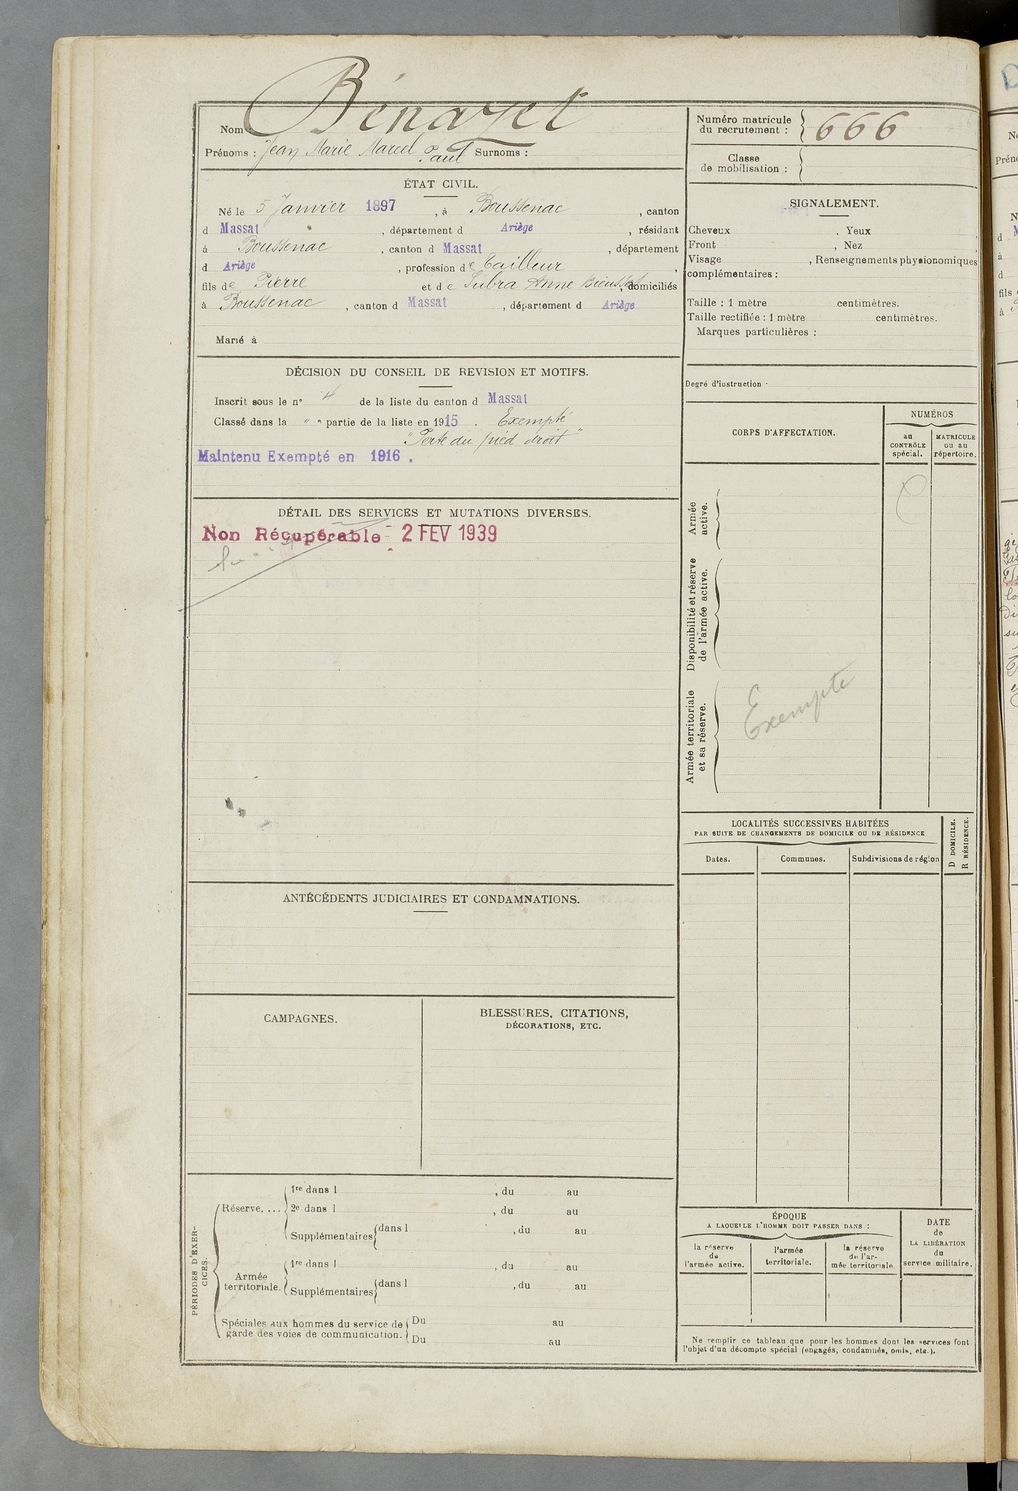 Nom Bénazet
Prénoms : Jean Marie Marcel Paul Surnoms :
ÉTAT CIVIL.
Né le 5 Janvier 1897, à Boussenac, canton
d Massat, département d Ariège, résidant
à Boussenac, canton d Massat, département
d Ariège, profession de Tailleur,
fils de Pierre et de Subra Anne domiciliés
à Boussenac, canton d Massat, département d Ariège
Marié à
DÉCISION DU CONSEIL DE REVISION ET MOTIFS.
Inscrit sous le n° 4 de la liste du canton d Massat
Classé dans la " " partie de la liste en 1915. Exempté
"Perte du pied droit"
Maintenu Exempté en 1916.
DÉTAIL DES SERVICES ET MUTATIONS DIVERSES.
Non Récupérable - 2 FEV 1939
ANTÉCÉDENTS JUDICIAIRES ET CONDAMNATIONS.
CAMPAGNES.
BLESSURES, CITATIONS,
DÉCORATIONS, ETC.
PÉRIODES D'EXER-
CICES.
Réserve. ...
1re dans l , du au
2e dans l , du au
Supplémentaires dans l , du au
Armée
territoriale.
1re dans l , du au
Supplémentaires dans l , du au
Spéciales aux hommes du service de
garde des voies de communication.
Du au
Du au
Numéro matricule
du recrutement : 666
Classe
de mobilisation :
SIGNALEMENT.
Cheveux , Yeux
Front , Nez
Visage , Renseignements physionomiques
complémentaires :
Taille : 1 mètre centimètres.
Taille rectifiée : 1 mètre centimètres.
Marques particulières :
Degré d'instruction
CORPS D'AFFECTATION.
NUMÉROS
au
CONTRÔLE
spécial.
MATRICULE
ou au
répertoire.
Armée
active.
Disponibilité et réserve
de l'armée active.
Armée territoriale
et sa réserve.
Exempté
LOCALITÉS SUCCESSIVES HABITÉES
PAR SUITE DE CHANGEMENTS DE DOMICILE OU DE RÉSIDENCE
D DOMICILE.
R RÉSIDENCE.
Dates.
Communes.
Subdivisions de région
ÉPOQUE
A LAQUELLE L'HOMME DOIT PASSER DANS :
la réserve
de
l'armée active.
l'armée
territoriale.
la réserve
de l'ar-
mée territoriale.
DATE
de
LA LIBÉRATION
du
service militaire.
Ne remplir ce tableau que pour les hommes dont les services font
l'objet d'un décompte spécial (engagés, condamnés, omis, etc.).